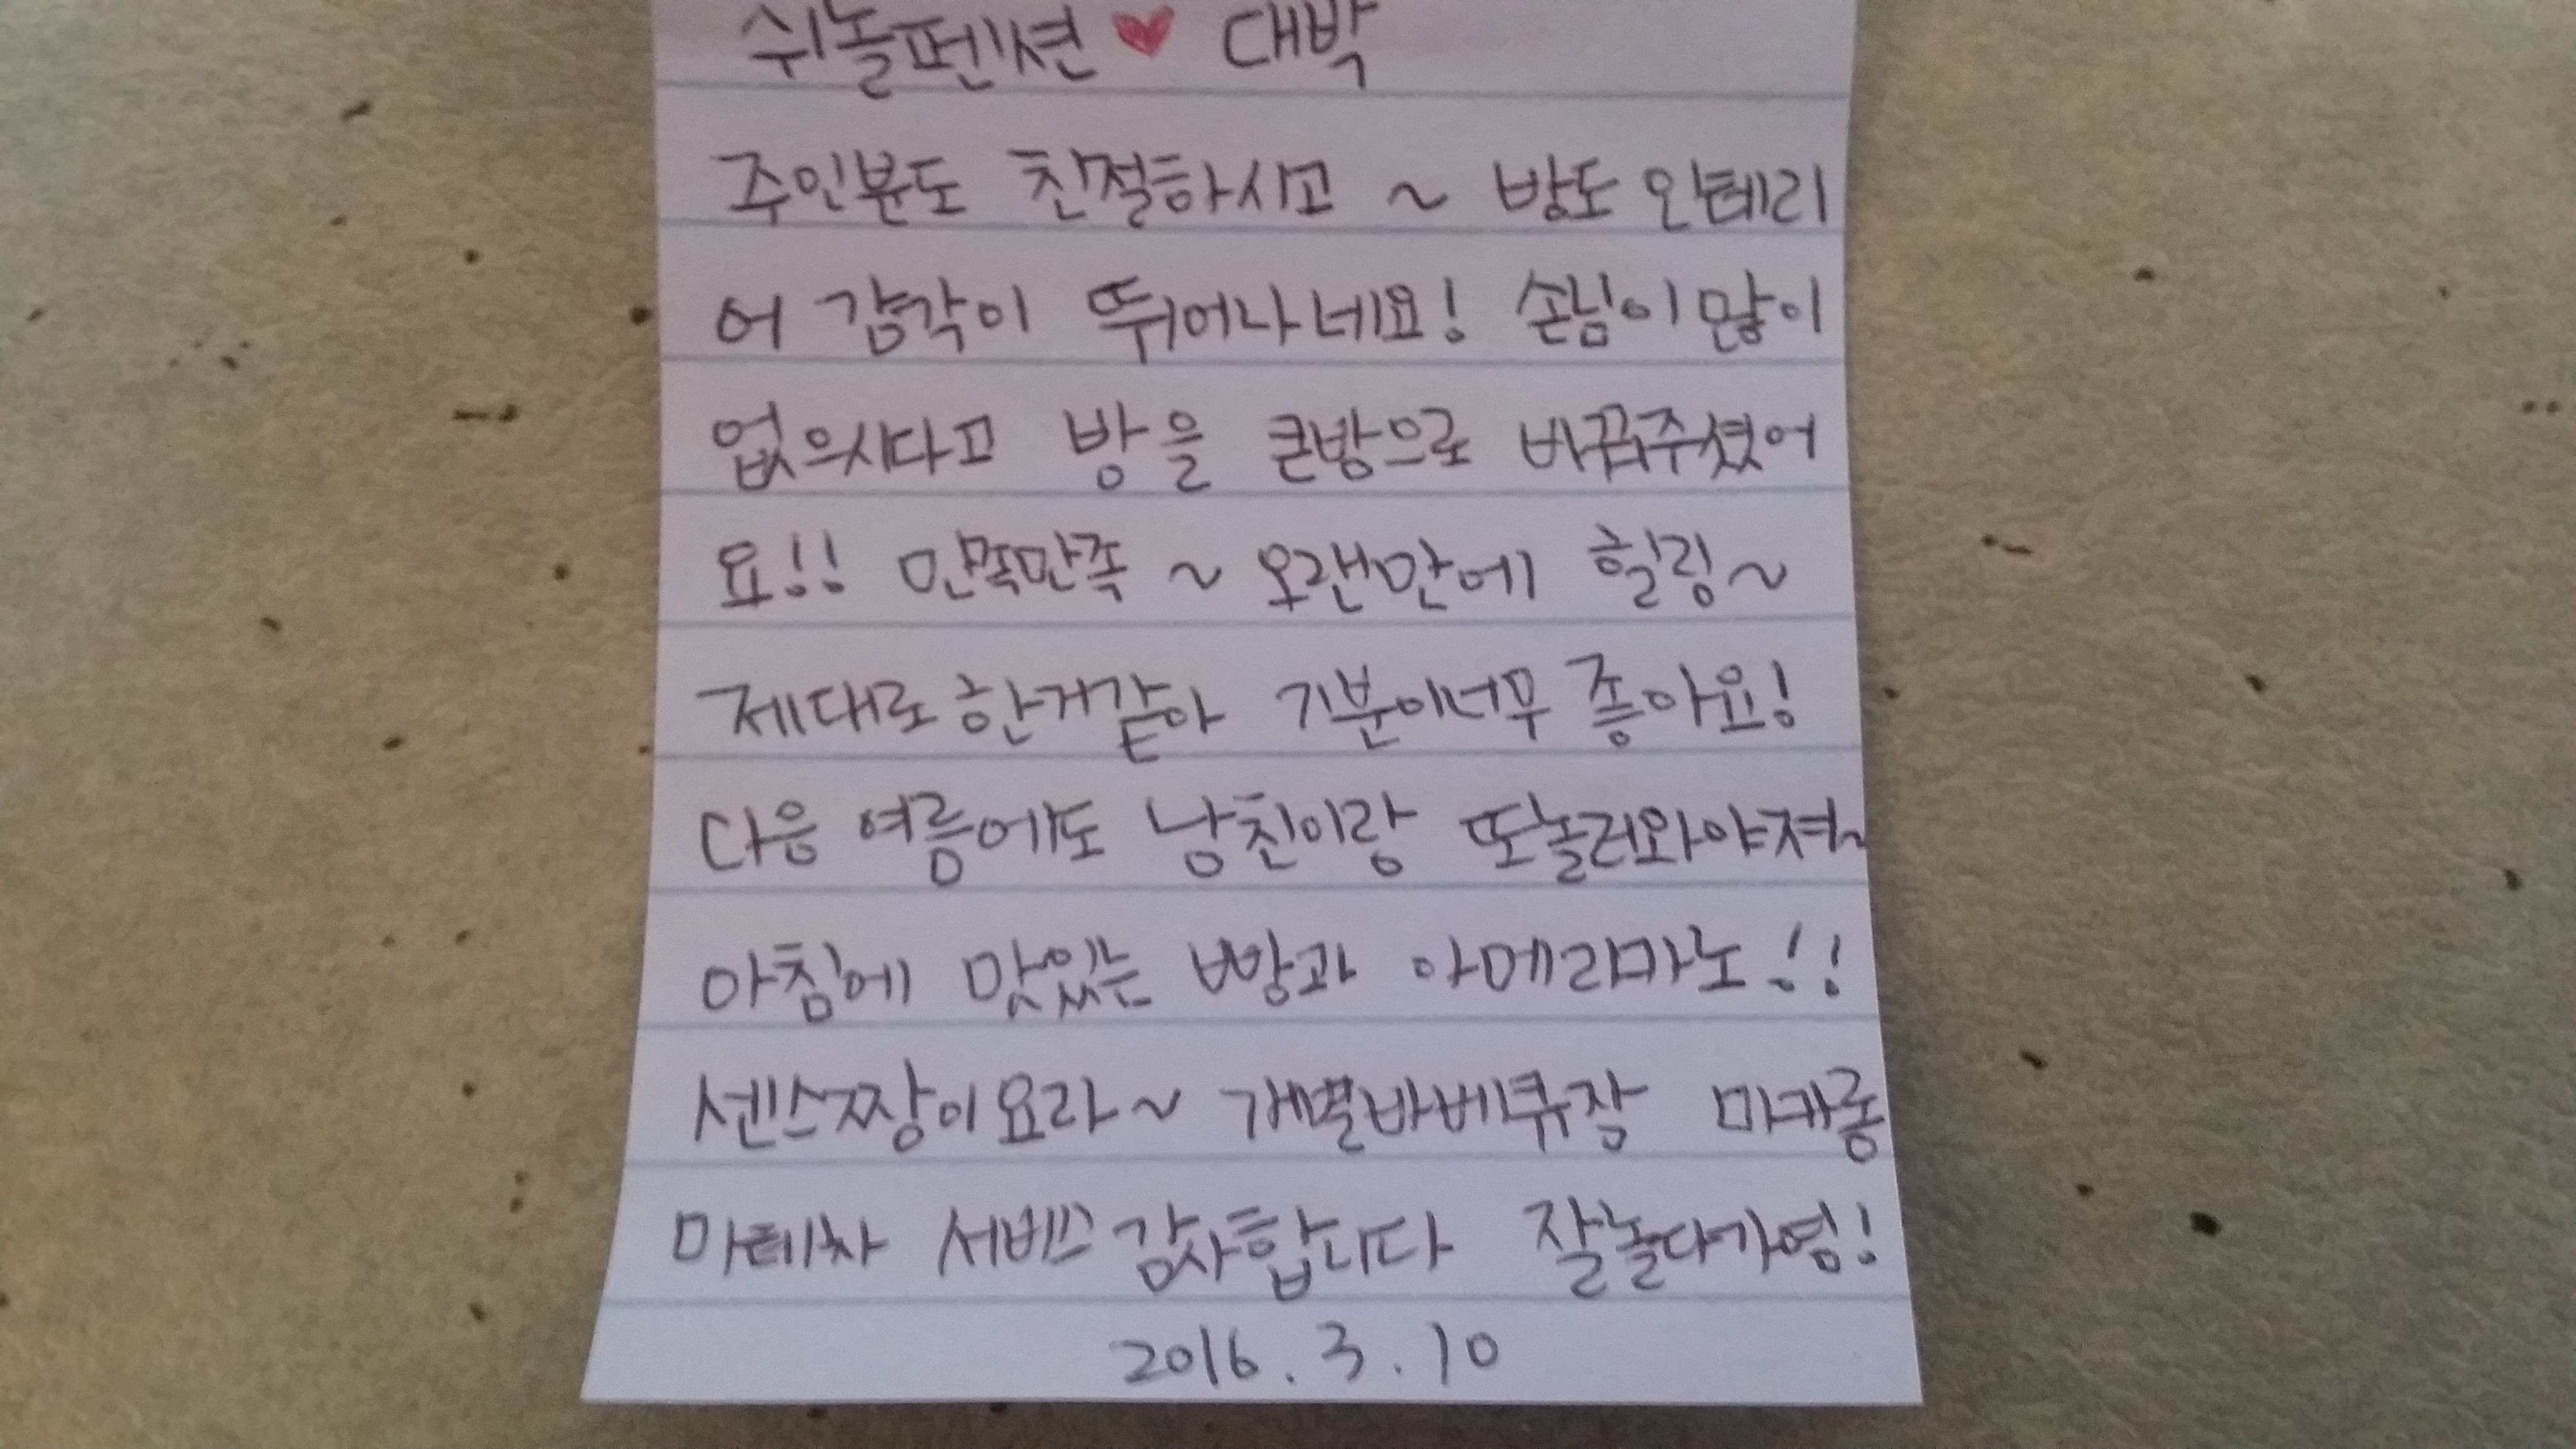 쉬놀펜션 ♥ 대박
주인분도 친절하시고 ~ 방도 인테리
어 감각이 뛰어나네요! 손님이 많이
없으시다고 방을 큰방으로 바꿔주셨어
요!! 만족만족 ~ 오랜만에 힐링~
제대로한거같아 기분이너무 좋아요!
다음 여름에도 남친이랑 또놀러와야져~
아침에 맛있는 빵과 아메리카노!!
센스짱이요라~ 개별바베큐장 마카롱
마테차 서비스 감사합니다 잘놀다가염!
2016. 3. 10